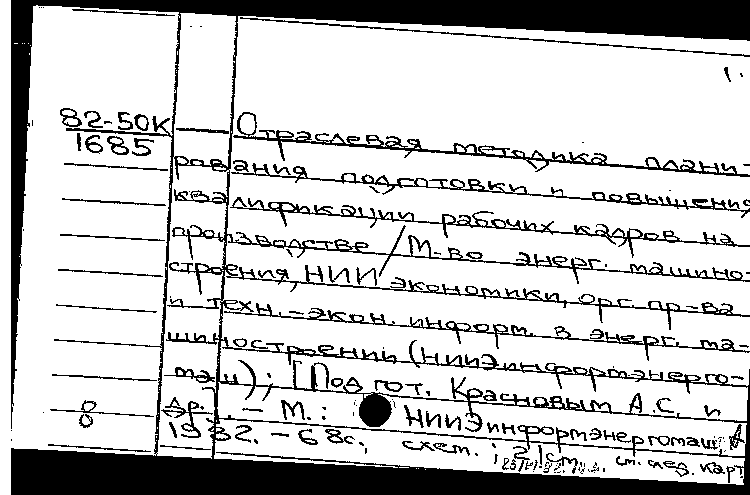 1.
82-50К
1685
Отраслевая методика плани-
рования подготовки и повышения
квалификации рабочих кадров на
производстве / М-во энерг. машино-
строения, НИИ экономики, орг. пр-ва
и техн.-экон. информ. в энерг. ма-
шиностроении (НИИЭинформэнерго-
маш); [Подгот. Красновым А.С. и
др.]. - М.: НИИЭинформэнергомаш,
1982. - 68с.; схем.; 21см. см. след. карт.